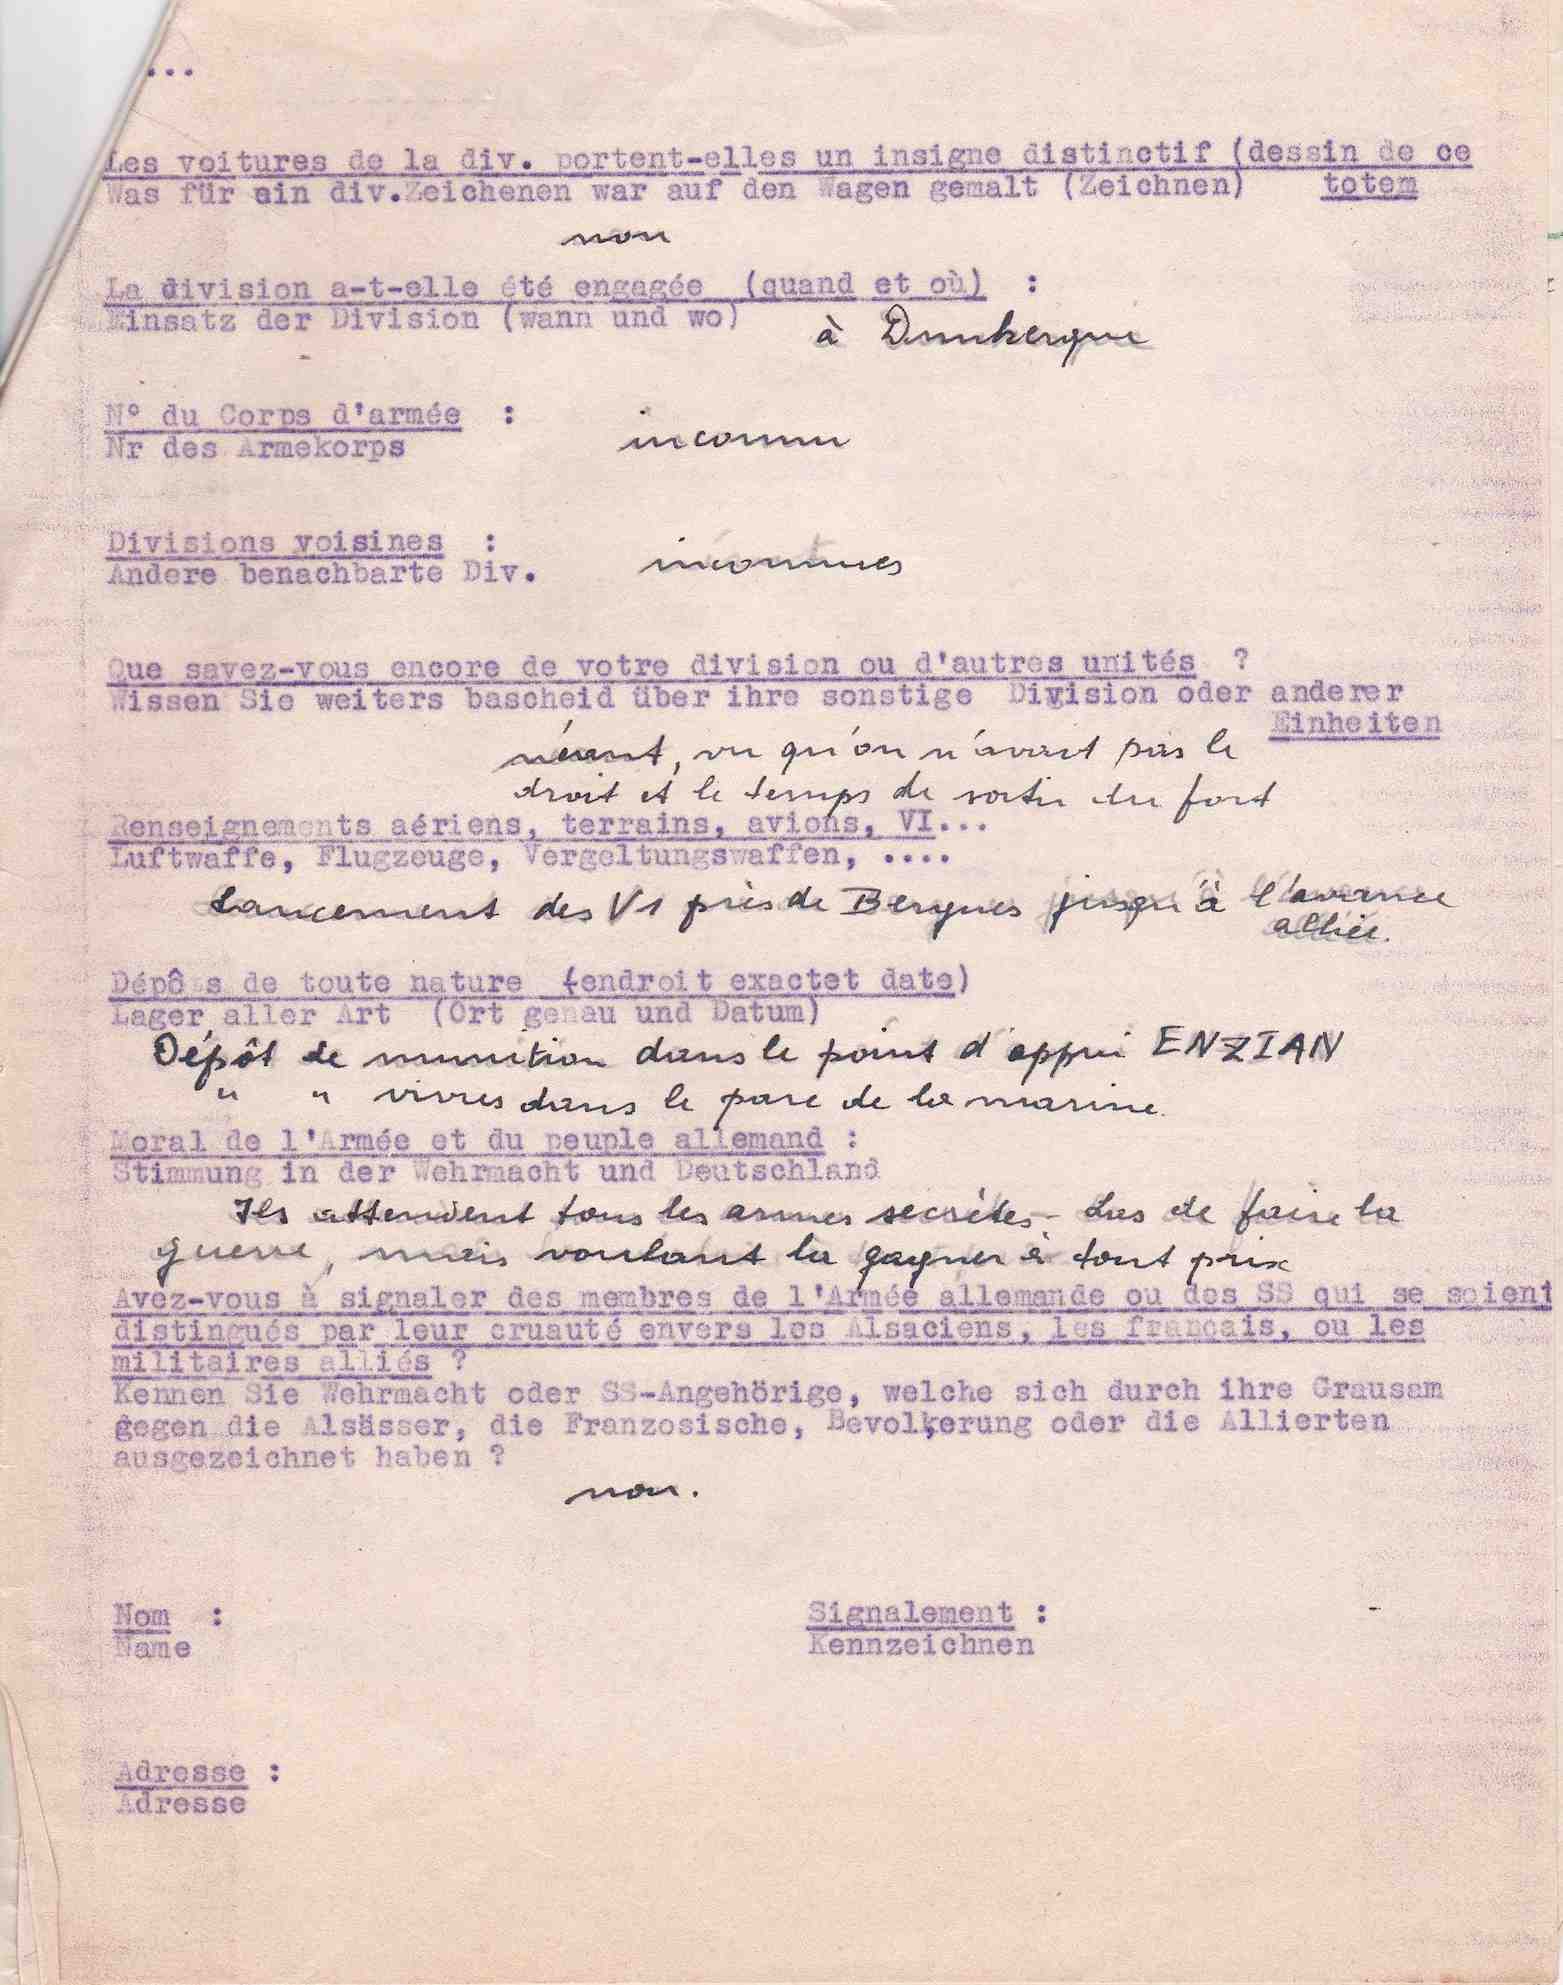 ...
Les voitures de la div. portent-elles un insigne distinctif (dessin de ce
Was für ein div.Zeichenen war auf den Wagen gemalt (Zeichnen) totem
non
La division a-t-elle été engagée (quand et où) :
Einsatz der Division (wann und wo)
à Dunkerque
N° du Corps d'armée :
Nr des Armekorps
inconnu
Divisions voisines :
Andere benachbarte Div.
inconnues
Que savez-vous encore de votre division ou d'autres unités ?
Wissen Sie weiters bascheid über ihre sonstige Division oder anderer
Einheiten
néant, vu qu'on n'avait pas le
droit et le temps de sortir du fort
Renseignements aériens, terrains, avions, VI...
Luftwaffe, Flugzeuge, Vergeltungswaffen, ....
Lancement des V1 près de Bergues jusqu'à l'avance
alliée.
Dépôs de toute nature (endroit exactet date)
Lager aller Art (Ort genau und Datum)
Dépôt de munition dans le point d'appui ENZIAN
" " vivres dans le parc de la marine.
Moral de l'Armée et du peuple allemand :
Stimmung in der Wehrmacht und Deutschland
Ils attendent tous les armes secrètes - Las de faire la
guerre, mais voulant la gagner à tout prix
Avez-vous à signaler des membres de l'Armée allemande ou des SS qui se soient
distingués par leur cruauté envers les Alsaciens, les français, ou les
militaires alliés ?
Kennen Sie Wehrmacht oder SS-Angehörige, welche sich durch ihre Grausam
gegen die Alsässer, die Franzosische, Bevolkerung oder die Allierten
ausgezeichnet haben ?
non.
Nom : Signalement :
Name Kennzeichnen
Adresse :
Adresse